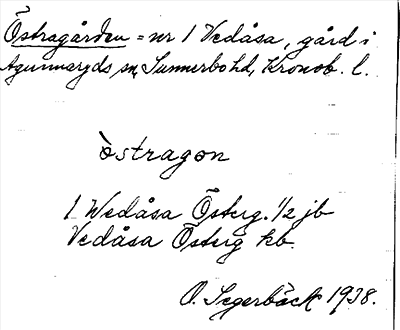 Östragården = nr 1 Vedåsa, gård i
Agunnaryds sn, Sunnerbo hd, Kronob. l.
òstragon
1 Wedåsa Österg. 1/2 jb
Vedåsa Österg kb.
O. Segerbäck 1938.